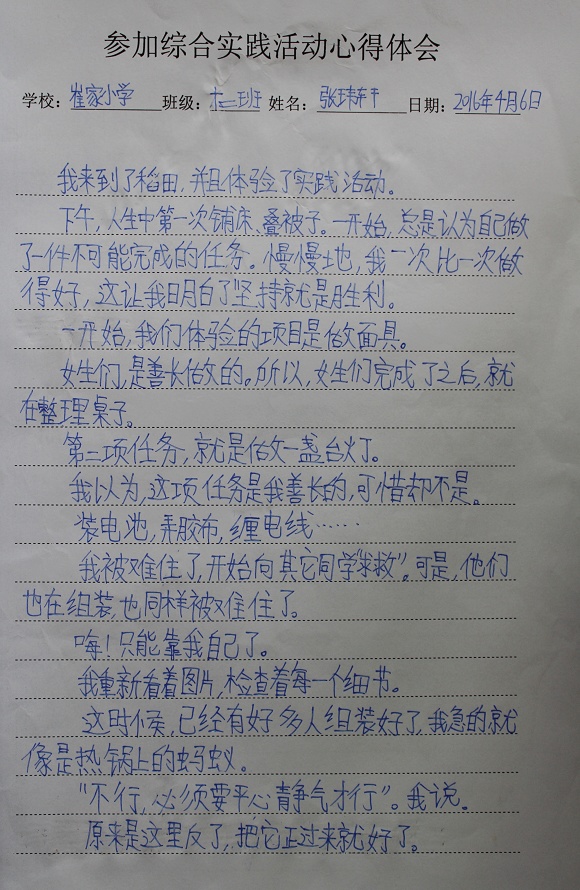 参加综合实践活动心得体会
学校：崔家小学 班级：六二班 姓名：张玮轩 日期：2016年4月6日
我来到了稻田，并且体验了实践活动。
下午，人生中第一次铺床、叠被子。一开始，总是认为自己做
了一件不可能完成的任务。慢慢地，我一次比一次做
得好，这让我明白了坚持就是胜利。
一开始，我们体验的项目是做面具。
女生们，是善长做文的。所以，女生们完成了之后，就
在整理桌子。
第二项任务，就是做一盏台灯。
我以为，这项任务是我善长的，可惜却不是。
装电池，弄胶布，缠电线……
我被难住了，开始向其它同学“求救”。可是，他们
也在组装，也同样被难住了。
嗨！只能靠我自己了。
我重新看着图片，检查着每一个细节。
这时候，已经有好多人组装好了，我急的就
像是热锅上的蚂蚁。
“不行，必须要平心静气才行”。我说。
原来是这里反了，把它正过来就好了。